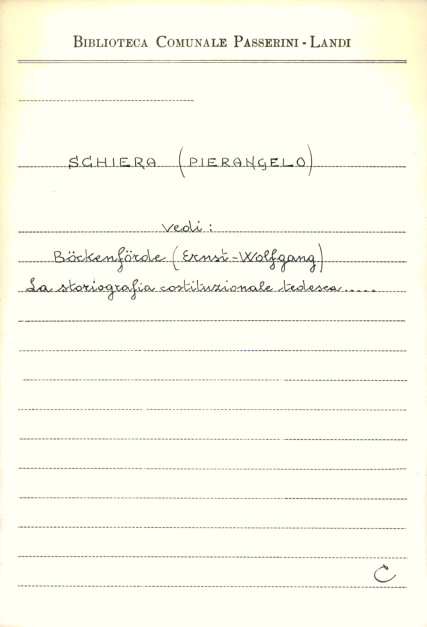 BIBLIOTECA COMUNALE PASSERINI - LANDI
SCHIERA (PIERANGELO)
Vedi :
Böckenförde (Ernst-Wolfgang)
La storiografia costituzionale tedesca.....
C